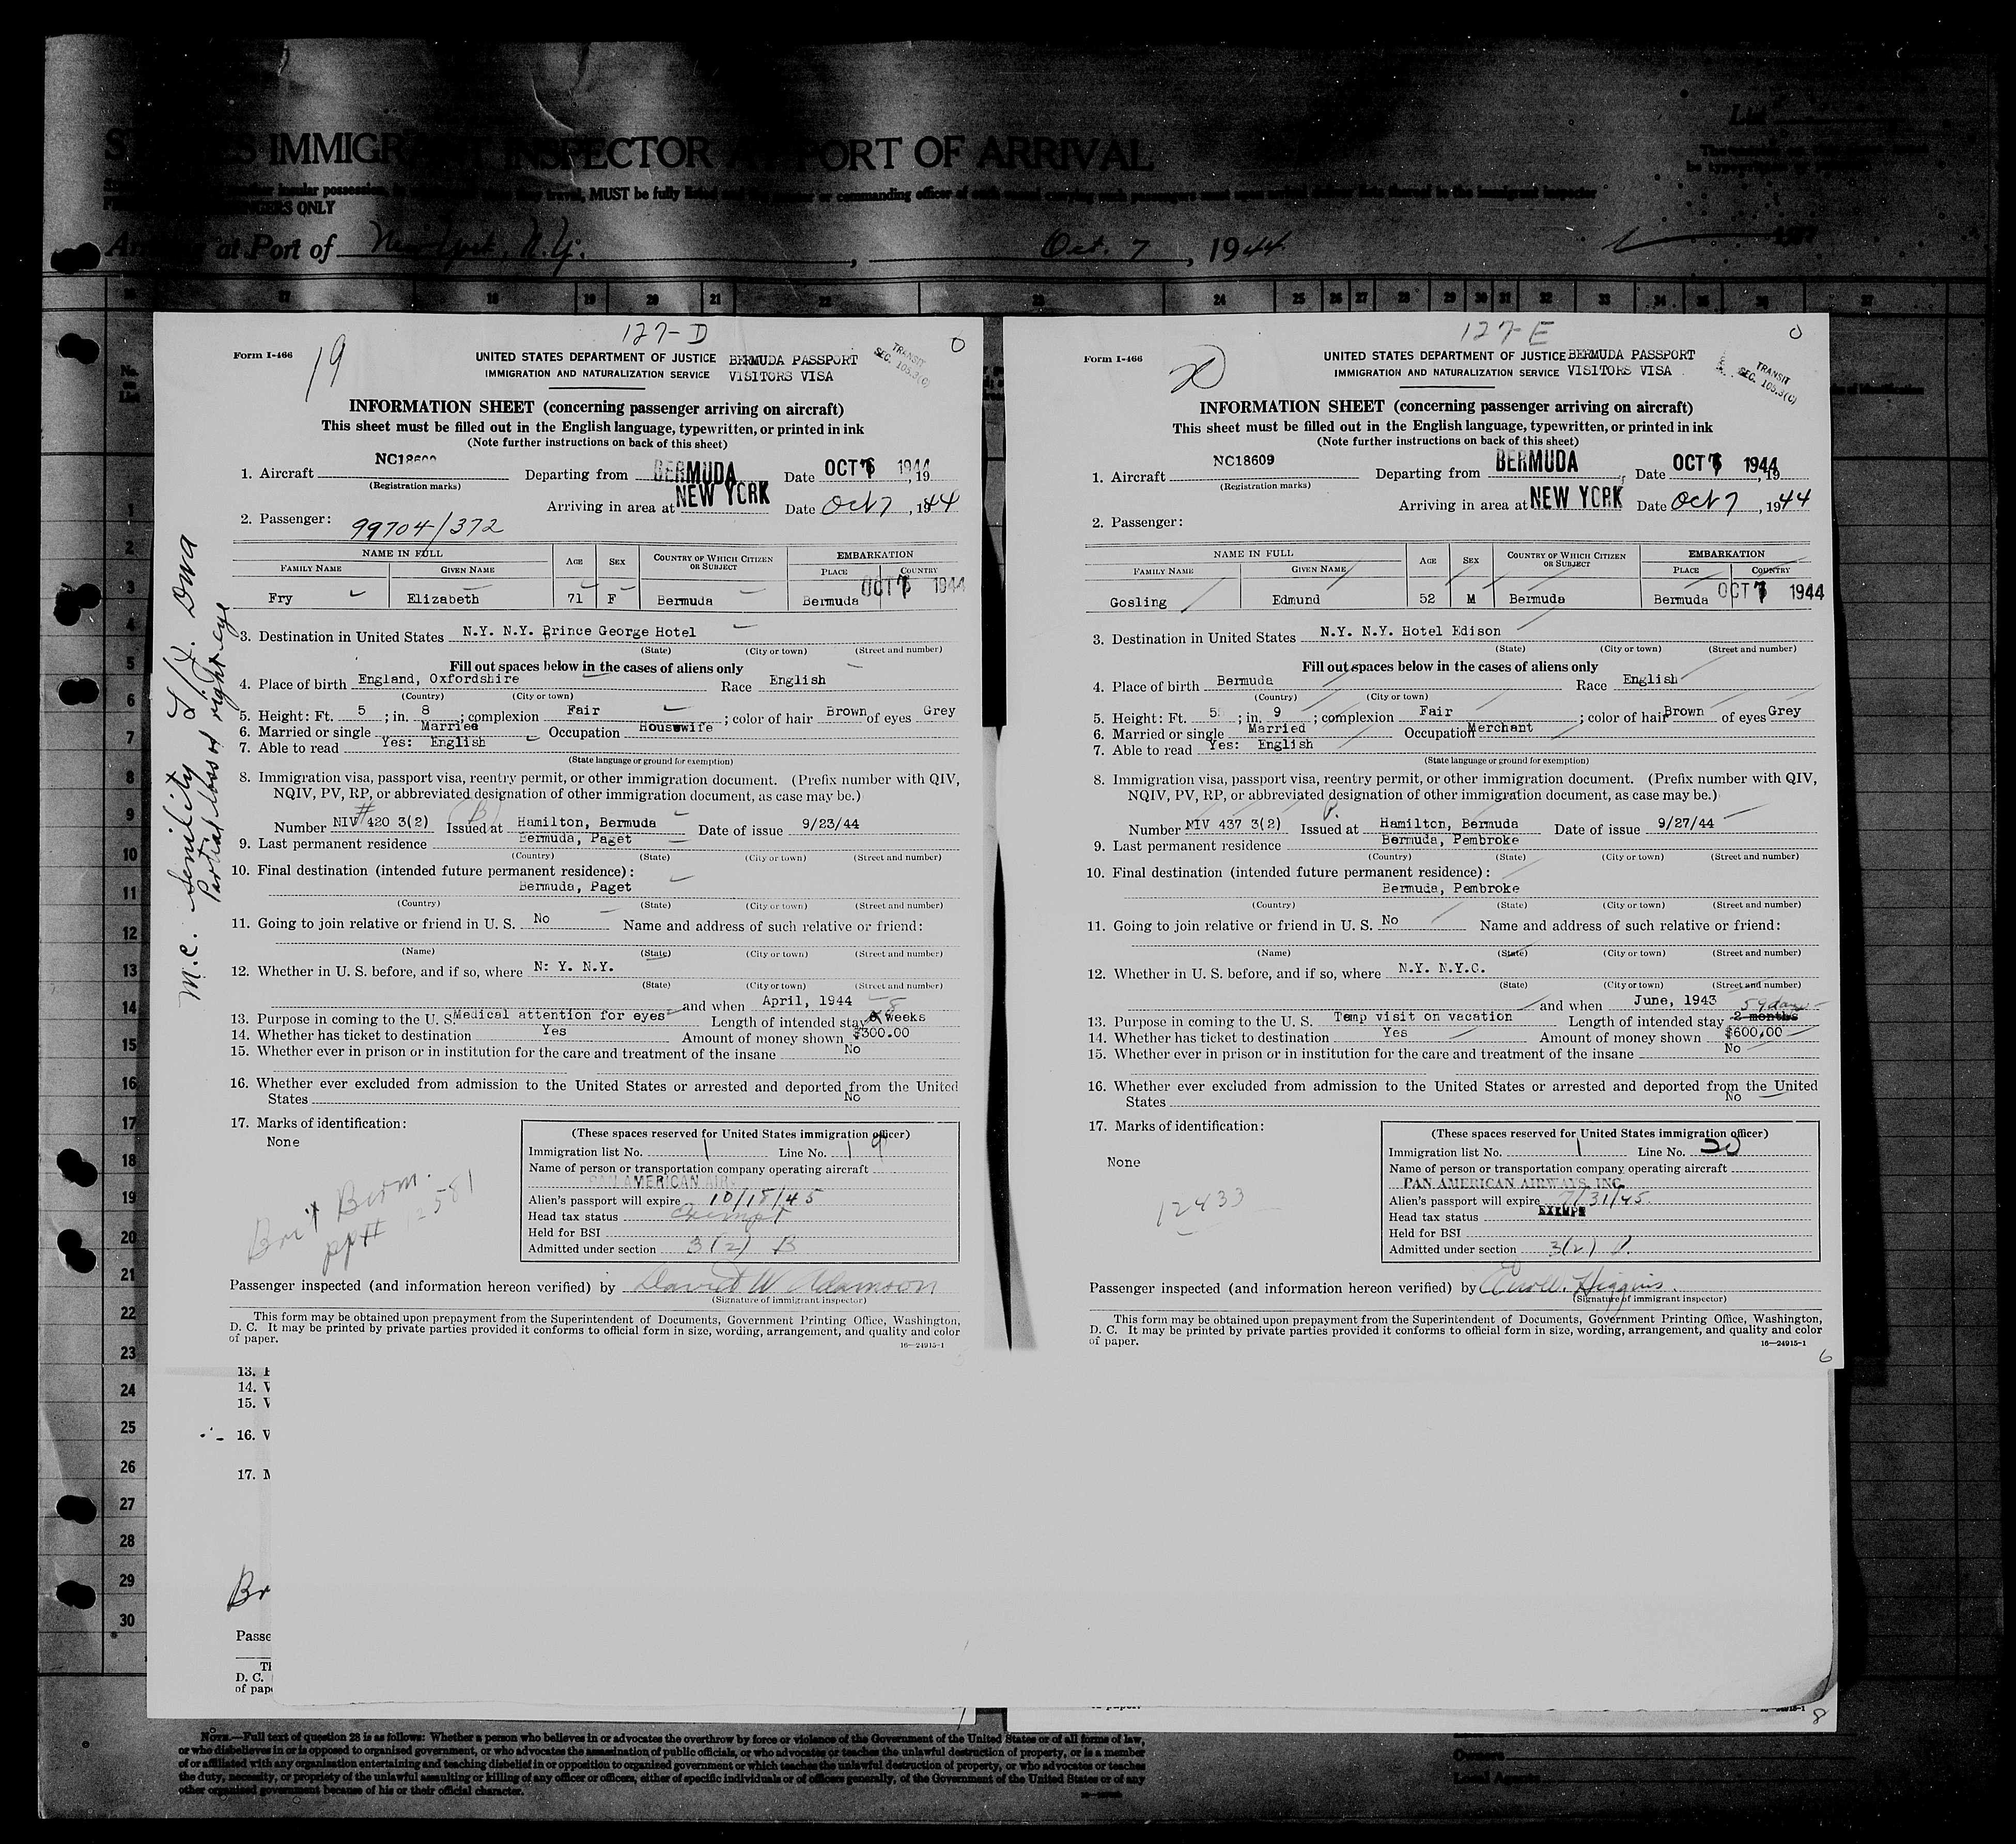 IMMIGR INSPECTOR PORT OF ARRIVAL
insular possession, travel, MUST be fully listed or commanding officer of
ONLY
at Port of New York, N.Y. , Oct. 7 , 1944
17 18 19 20 21 22 23 24 25 26 27 28 29 30 31 32 33 34 35 36 37
127-D
Form I-466
19
UNITED STATES DEPARTMENT OF JUSTICE BERMUDA PASSPORT
IMMIGRATION AND NATURALIZATION SERVICE VISITORS VISA
TRANSIT
SEC. 105.3(C)
INFORMATION SHEET (concerning passenger arriving on aircraft)
This sheet must be filled out in the English language, typewritten, or printed in ink
(Note further instructions on back of this sheet)
1. Aircraft NC18609 Departing from BERMUDA Date OCT 1944, 19
(Registration marks)
Arriving in area at NEW YORK Date Oct 7, 1944
2. Passenger: 99704/372
NAME IN FULL AGE SEX COUNTRY OF WHICH CITIZEN OR SUBJECT EMBARKATION
FAMILY NAME GIVEN NAME PLACE COUNTRY
OCT 1944
Fry Elizabeth 71 F Bermuda Bermuda
3. Destination in United States N.Y. N.Y. Prince George Hotel
(State) (City or town) (Street and number)
Fill out spaces below in the cases of aliens only
4. Place of birth England, Oxfordshire Race English
(Country) (City or town)
5. Height: Ft. 5 ; in. 8 ; complexion Fair ; color of hair Brown of eyes Grey
6. Married or single Married Occupation Housewife
7. Able to read Yes: English
(State language or ground for exemption)
8. Immigration visa, passport visa, reentry permit, or other immigration document. (Prefix number with QIV,
NQIV, PV, RP, or abbreviated designation of other immigration document, as case may be.)
(B)
Number NIV # 420 3(2) Issued at Hamilton, Bermuda Date of issue 9/23/44
9. Last permanent residence Bermuda, Paget
(Country) (State) (City or town) (Street and number)
10. Final destination (intended future permanent residence):
Bermuda, Paget
(Country) (State) (City or town) (Street and number)
11. Going to join relative or friend in U. S. No Name and address of such relative or friend:
(Name) (State) (City or town) (Street and number)
12. Whether in U. S. before, and if so, where N: Y. N.Y.
(State) (City or town) (Street and number)
and when April, 1944
13. Purpose in coming to the U. S. Medical attention for eyes Length of intended stay 8 weeks
14. Whether has ticket to destination Yes Amount of money shown $300.00
15. Whether ever in prison or in institution for the care and treatment of the insane No
16. Whether ever excluded from admission to the United States or arrested and deported from the United
States No
17. Marks of identification:
None
(These spaces reserved for United States immigration officer)
Immigration list No. 1 Line No. 19
Name of person or transportation company operating aircraft
PAN AMERICAN AIR
Alien's passport will expire 10/18/45
Head tax status Exempt
Held for BSI
Admitted under section 3(2) B
Brit Berm.
ppt# 12581
Passenger inspected (and information hereon verified) by David W Adamson
(Signature of immigrant inspector)
This form may be obtained upon prepayment from the Superintendent of Documents, Government Printing Office, Washington,
D. C. It may be printed by private parties provided it conforms to official form in size, wording, arrangement, and quality and color
of paper.
16—24915-1
M.C. Senility
Partial loss of right eye
127-E
Form I-466
20
UNITED STATES DEPARTMENT OF JUSTICE BERMUDA PASSPORT
IMMIGRATION AND NATURALIZATION SERVICE VISITORS VISA
TRANSIT
SEC. 105.3(C)
INFORMATION SHEET (concerning passenger arriving on aircraft)
This sheet must be filled out in the English language, typewritten, or printed in ink
(Note further instructions on back of this sheet)
1. Aircraft NC18609 Departing from BERMUDA Date OCT 1944, 19
(Registration marks)
Arriving in area at NEW YORK Date Oct 7, 1944
2. Passenger:
NAME IN FULL AGE SEX COUNTRY OF WHICH CITIZEN OR SUBJECT EMBARKATION
FAMILY NAME GIVEN NAME PLACE COUNTRY
OCT 1944
Gosling Edmund 52 M Bermuda Bermuda
3. Destination in United States N.Y. N.Y. Hotel Edison
(State) (City or town) (Street and number)
Fill out spaces below in the cases of aliens only
4. Place of birth Bermuda Race English
(Country) (City or town)
5. Height: Ft. 5 ; in. 9 ; complexion Fair ; color of hair Brown of eyes Grey
6. Married or single Married Occupation Merchant
7. Able to read Yes: English
(State language or ground for exemption)
8. Immigration visa, passport visa, reentry permit, or other immigration document. (Prefix number with QIV,
NQIV, PV, RP, or abbreviated designation of other immigration document, as case may be.)
Number NIV 437 3(2) Issued at Hamilton, Bermuda Date of issue 9/27/44
9. Last permanent residence Bermuda, Pembroke
(Country) (State) (City or town) (Street and number)
10. Final destination (intended future permanent residence):
Bermuda, Pembroke
(Country) (State) (City or town) (Street and number)
11. Going to join relative or friend in U. S. No Name and address of such relative or friend:
(Name) (State) (City or town) (Street and number)
12. Whether in U. S. before, and if so, where N.Y. N.Y.C.
(State) (City or town) (Street and number)
and when June, 1943 59 days
13. Purpose in coming to the U. S. Temp visit on vacation Length of intended stay 2 months
14. Whether has ticket to destination Yes Amount of money shown $600.00
15. Whether ever in prison or in institution for the care and treatment of the insane No
16. Whether ever excluded from admission to the United States or arrested and deported from the United
States No
17. Marks of identification:
None
12433
(These spaces reserved for United States immigration officer)
Immigration list No. 1 Line No. 20
Name of person or transportation company operating aircraft
PAN AMERICAN AIRWAYS, INC.
Alien's passport will expire 7/31/45
Head tax status EXEMPT
Held for BSI
Admitted under section 3(2)
Passenger inspected (and information hereon verified) by Higgins
(Signature of immigrant inspector)
This form may be obtained upon prepayment from the Superintendent of Documents, Government Printing Office, Washington,
D. C. It may be printed by private parties provided it conforms to official form in size, wording, arrangement, and quality and color
of paper.
16—24915-1
6
1
2
3
4
5
6
7
8
9
10
11
12
13
14
15
16
17
18
19
20
21
22
23
24
25
26
27
28
29
30
13.
14.
15.
16.
17.
Br
Passe
D. C.
of pap
8
NOTE.—Full text of question 28 is as follows: Whether a person who believes in or advocates the overthrow by force or violence of the Government of the United States or of all forms of law,
or who disbelieves in or is opposed to organized government, or who advocates the assassination of public officials, or who advocates or teaches the unlawful destruction of property, or is a member
of or affiliated with any organization entertaining and teaching disbelief in or opposition to organized government or which teaches the unlawful destruction of property, or who advocates or teaches
the duty, necessity, or propriety of the unlawful assaulting or killing of any officer or officers, either of specific individuals or of officers generally, of the Government of the United States or of any
other organized government because of his or their official character.
Owners
Local Agents